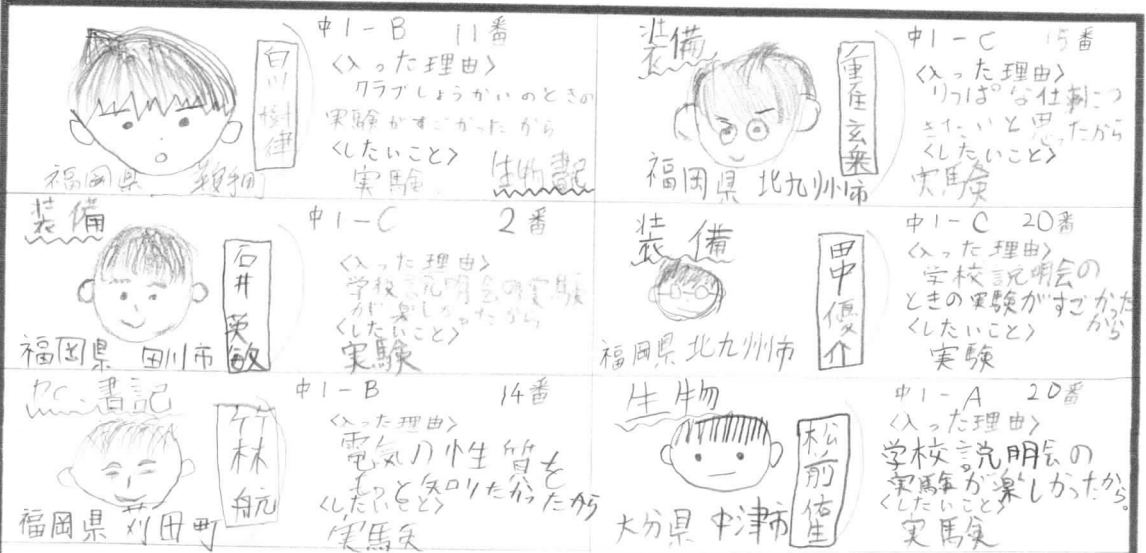 中1-B 11番
白川 樹律
<入った理由>
クラブしょうかいのときの
実験がすごかったから
<したいこと>
実験
生物 書記
福岡県
装備
中1-C 15番
<入った理由>
りっぱな仕事につ
きたいと思ったから
<したいこと>
実験
福岡県 北九州市
装備
中1-C 2番
石井 英敏
<入った理由>
学校説明会の実験
が楽しかったから
<したいこと>
実験
福岡県 田川市
装備
中1-C 20番
田中 優介
<入った理由>
学校説明会の
ときの実験がすごかった
から
<したいこと>
実験
福岡県 北九州市
書記
中1-B 14番
竹林 航
<入った理由>
電気の性質を
もっと知りたかったから
<したいこと>
実験
福岡県 苅田町
生物
中1-A 20番
松前 佑生
<入った理由>
学校説明会の
実験が楽しかったから。
<したいこと>
実験
大分県 中津市